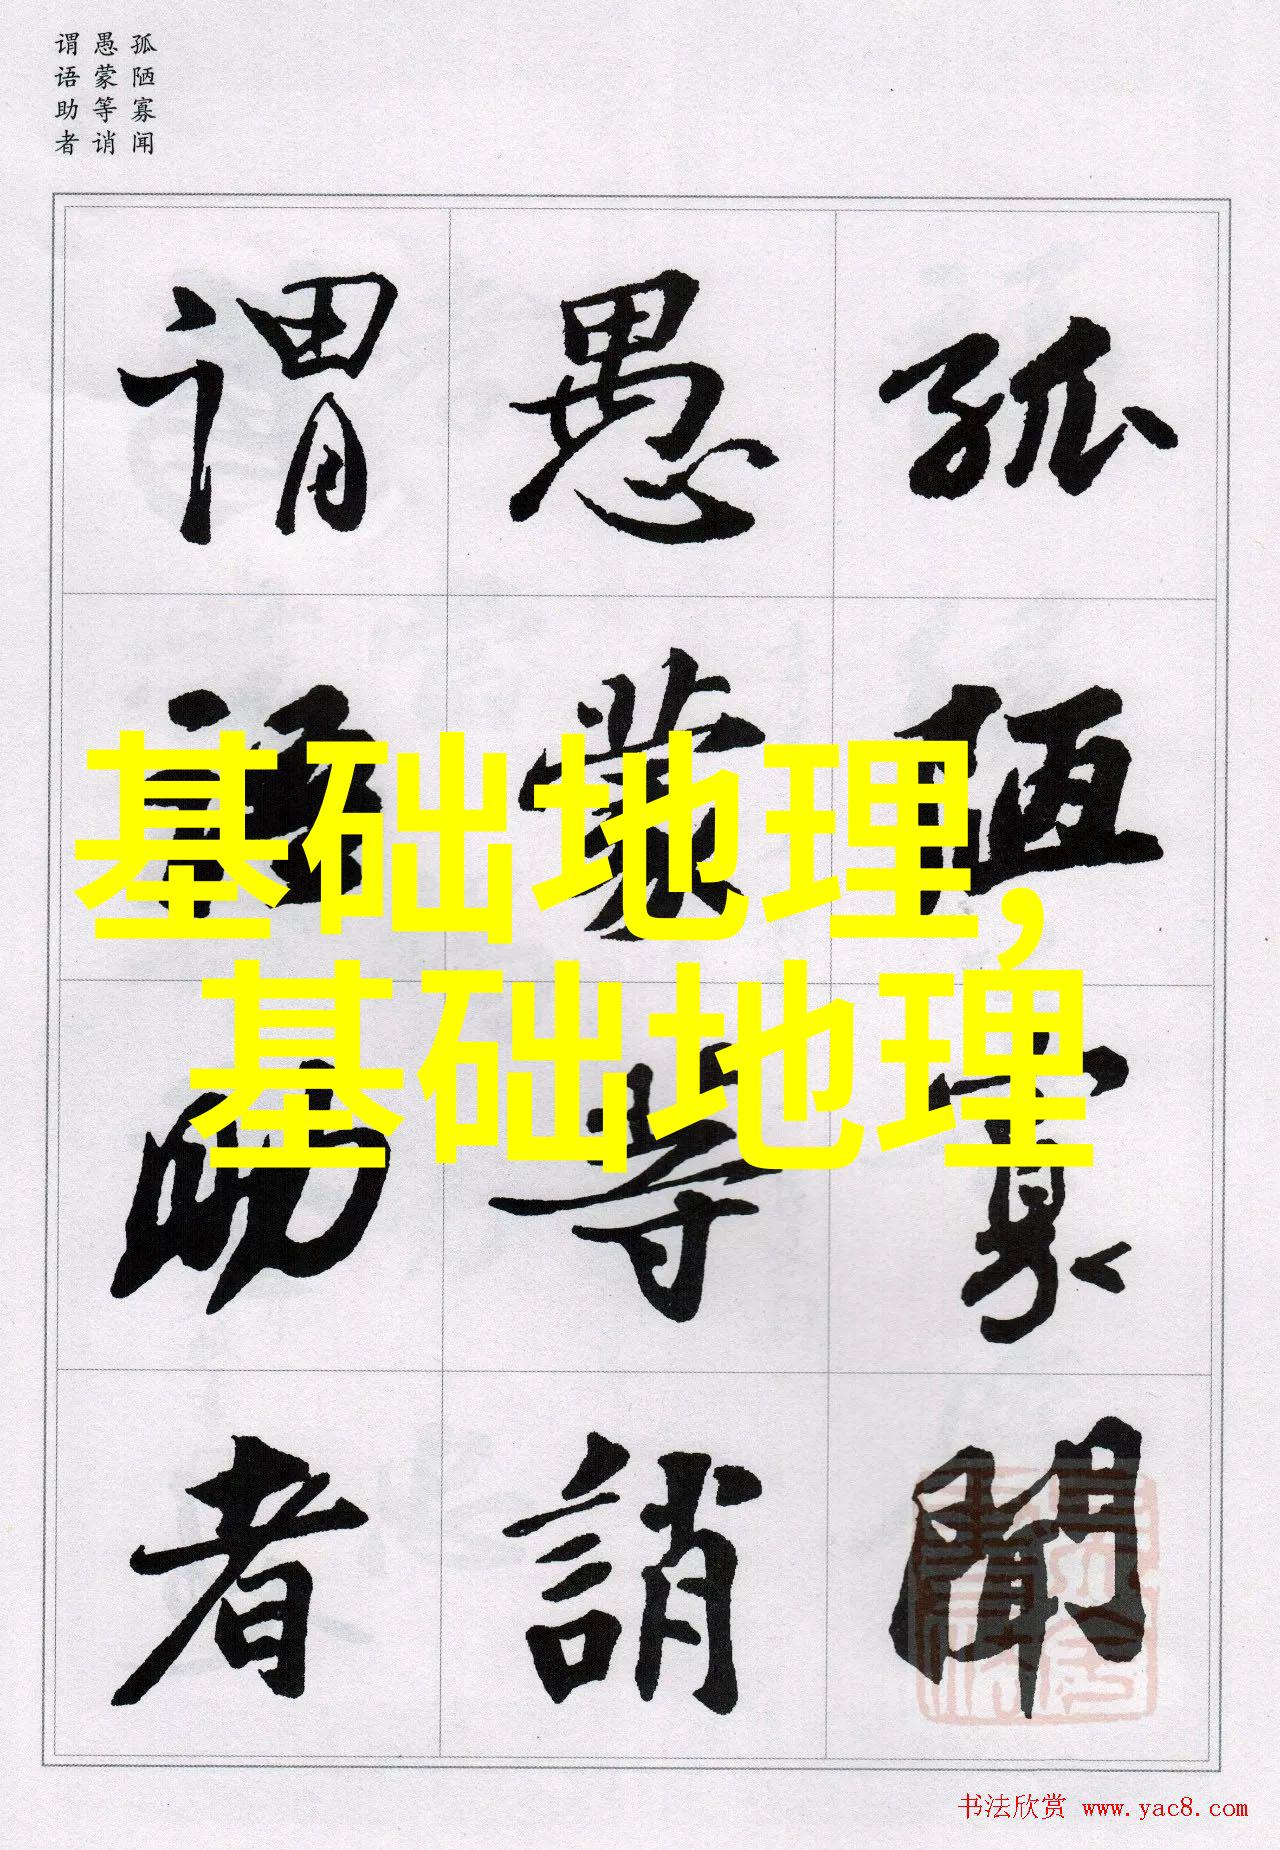 孤陋寡闻
愚蒙等诮
谓语助者
孤陋寡聞
愚蒙等誚
谓語助者
基础地理，
基础地理
书法欣赏 www.yac8.com